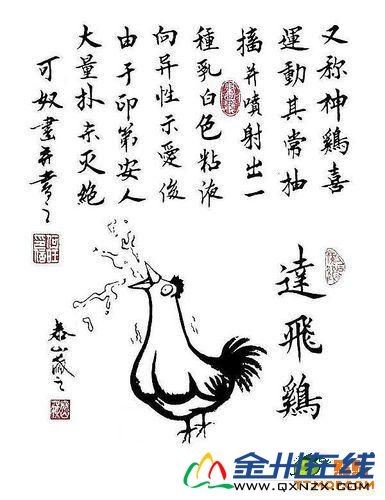 又称神鷄喜
運動其常抽
搐并噴射出一
種乳白色粘液
向异性示愛後
由于印第安人
大量扑杀灭絶
可奴畫并書之
達飛鷄
泰山藏之
金州在线
WWW.QXNZX.COM